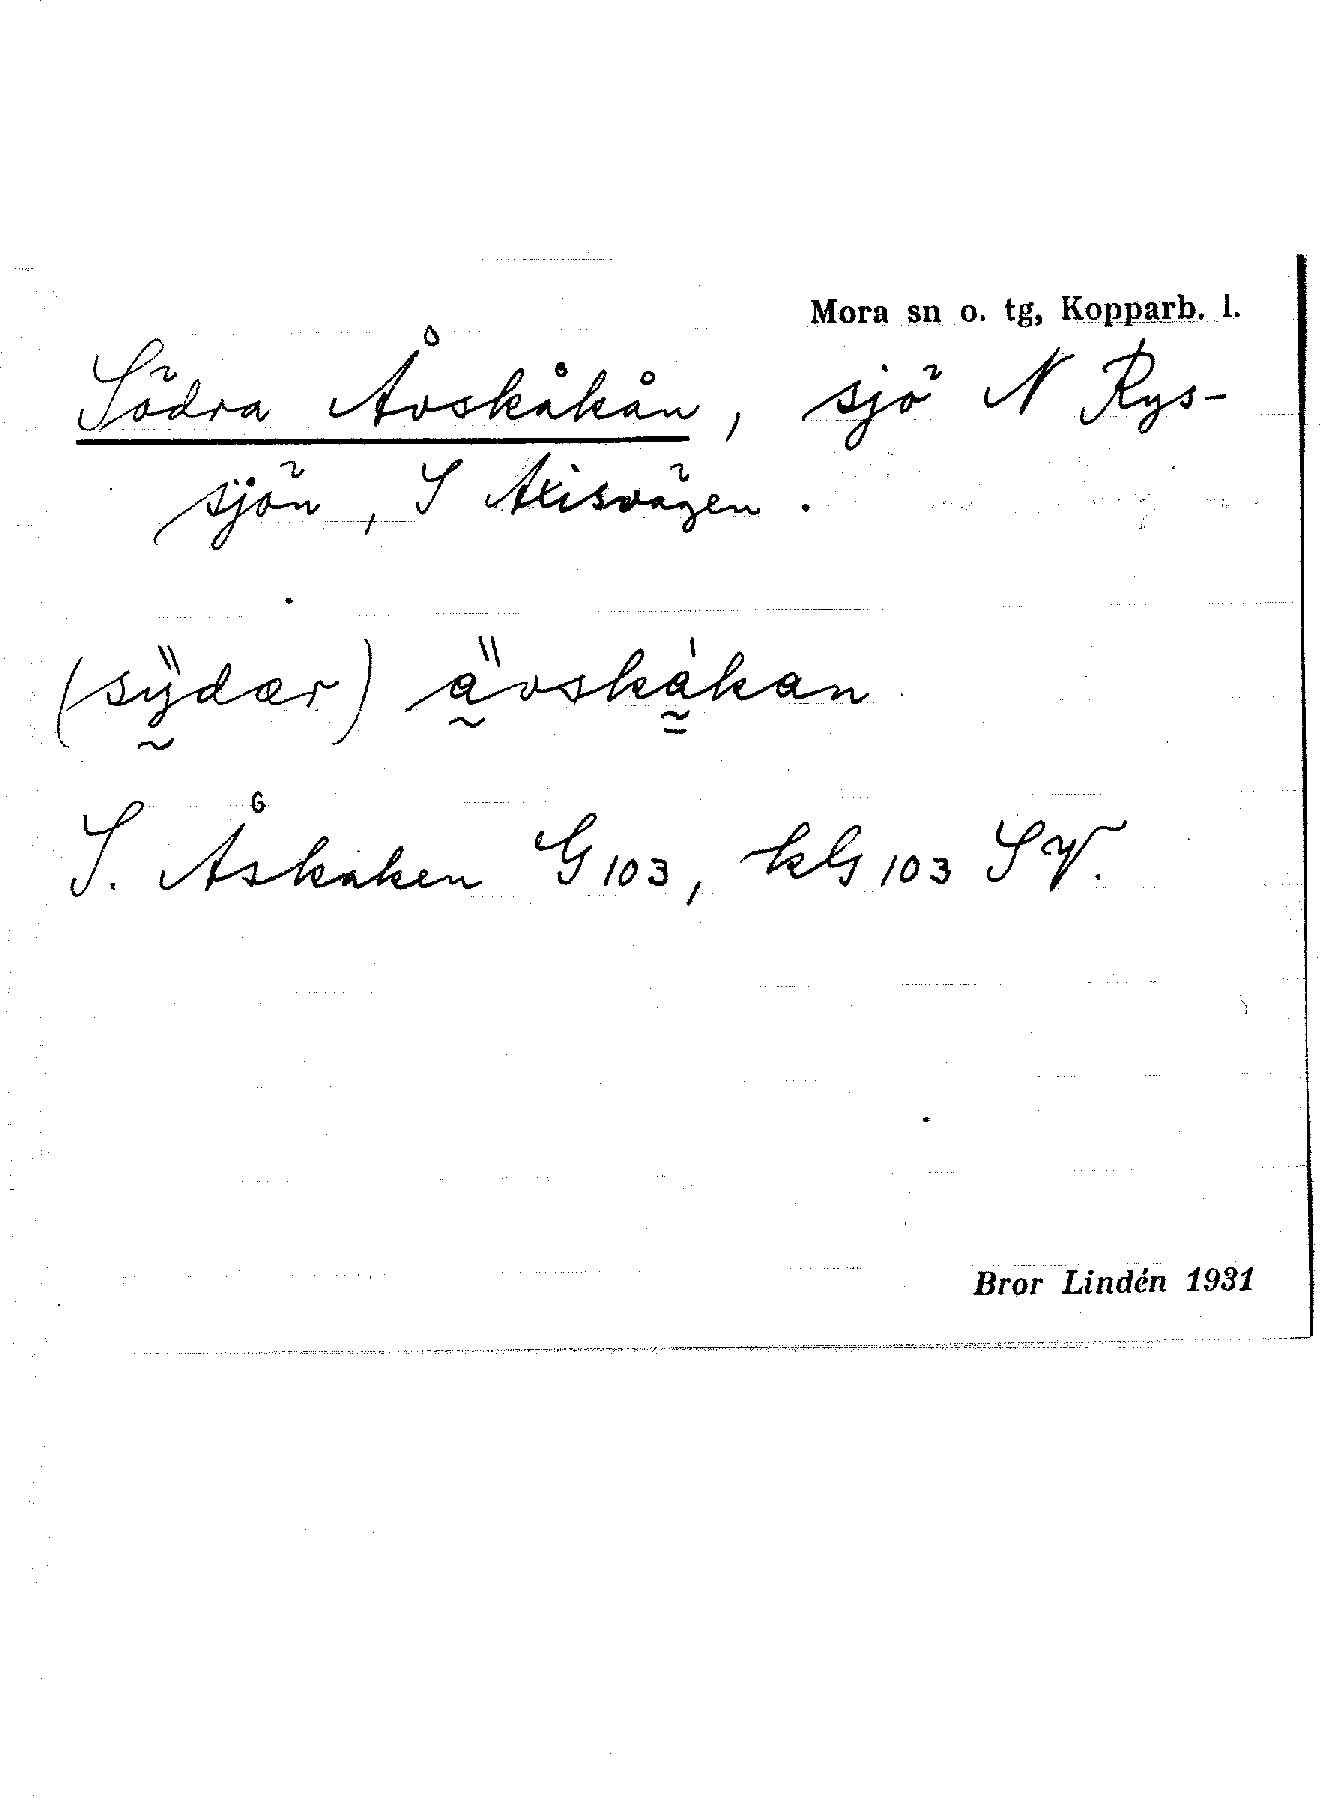 Mora sn o. tg, Kopparb. l.
Södra Åvskåkån, sjö N Rys-
sjön, S Axisvägen.
(sÿdær) ävskákan
S. Åskaken G 103, kG 103 SV.
Bror Lindén 1931